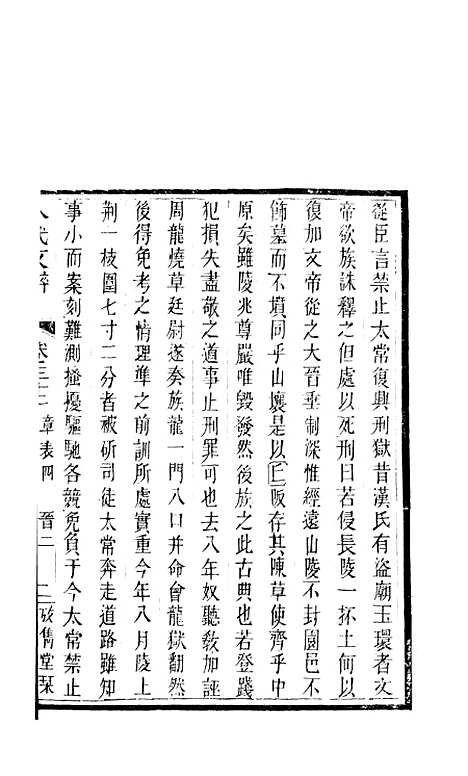 從臣言禁止太常復興刑獄昔漢氏有盜廟玉環者文
帝欲族誅釋之但處以死刑曰若侵長陵一抔土何以
復加文帝從之大晉垂制深惟經遠山陵不封園邑不
飾墓而不墳同乎山壤是以丘阪存其陳草使齊乎中
原矣雖陵兆尊嚴唯毀發然後族之此古典也若登踐
犯損失盡敬之道事止刑罪可也去八年奴聽教加誣
周龍燒草廷尉遂奏族龍一門八口并命會龍獄翻然
後得免考之情理準之前訓所處實重今年八月陵上
荆一枝圍七寸二分者被斫司徒太常奔走道路雖知
事小而案刻難測搔擾驅馳各競免負于今太常禁止
八代文粹 卷三十二 章表四 晉二 二 成雋堂栞